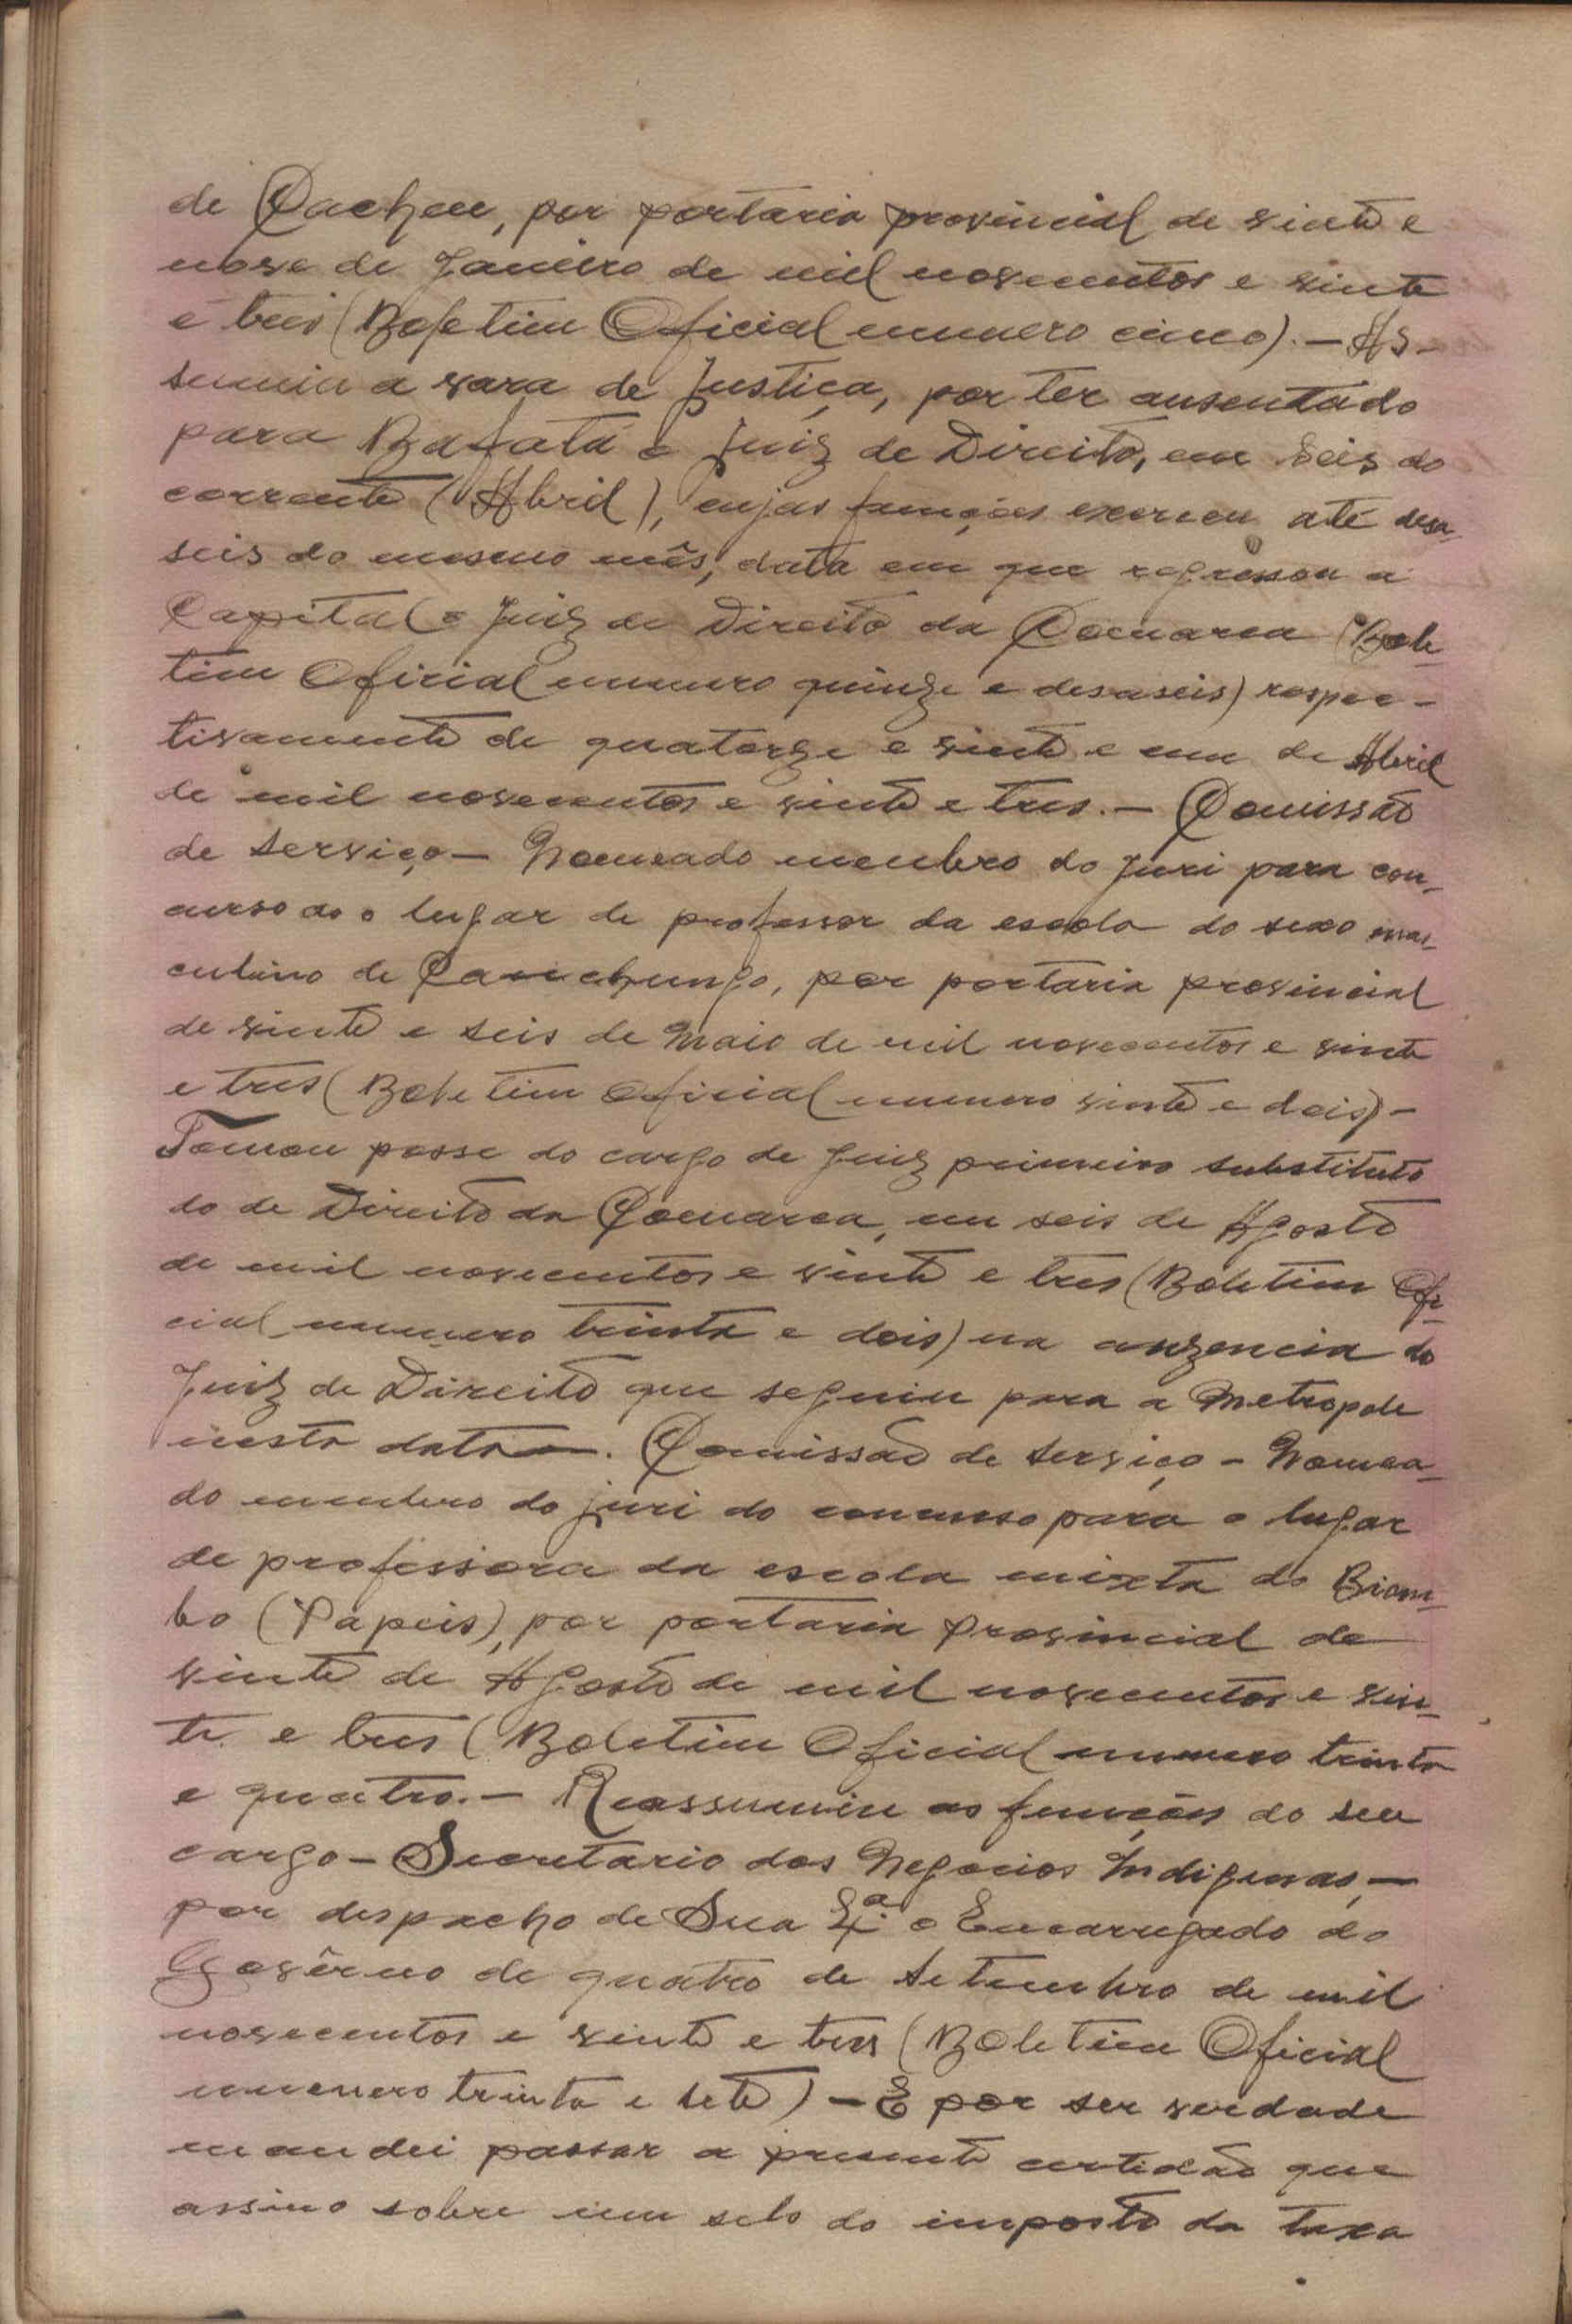 de Cacheu, por portaria provincial de vinte e
nove de Janeiro de mil novecentos e vinte
e tres (Boletim Oficial numero cinco). — As-
sumiu a vara de Justiça, por ter ausentado
para Bafatá o Juiz de Direito, em seis do
corrente (Abril), cujas funções exerceu até desa-
seis do mesmo mês, data em que regressou a
Capital o Juiz de Direito da Comarca (Bole-
tim Oficial numero quinze e desaseis) respec-
tivamente de quatorze e vinte e um de Abril
de mil novecentos e vinte e tres. — Comissão
de serviço — Nomeado membro do Juri para con-
curso do o lugar de professor da escola do sexo mas-
culino de Canchungo, por portaria provincial
de vinte e seis de Maio de mil novecentos e vinte
e tres (Boletim Oficial numero vinte e dois) —
Tomou posse do cargo de Juiz primeiro substituto
do de Direito da Comarca, em seis de Agosto
de mil novecentos e vinte e tres (Boletim Ofi-
cial numero trinta e dois) na auzencia do
Juiz de Direito que seguiu para a Metropole
nesta data. Comissão de serviço — Nomea-
do membro do juri do concurso para o lugar
de professora da escola mixta do Biom-
bo (Papeis), por portaria Provincial de
vinte de Agosto de mil novecentos e vin-
te e tres (Boletim Oficial numero trinta
e quatro. — Reassumiu as funções do seu
cargo — Secretario dos Negocios Indigenas, —
por despacho de Sua Exª o Encarregado do
Govêrno de quatro de Setembro de mil
novecentos e vinte e tres (Boletim Oficial
numero trinta e sete) — E por ser verdade
mandei passar a presente certidão que
assino sobre um selo do imposto da taxa